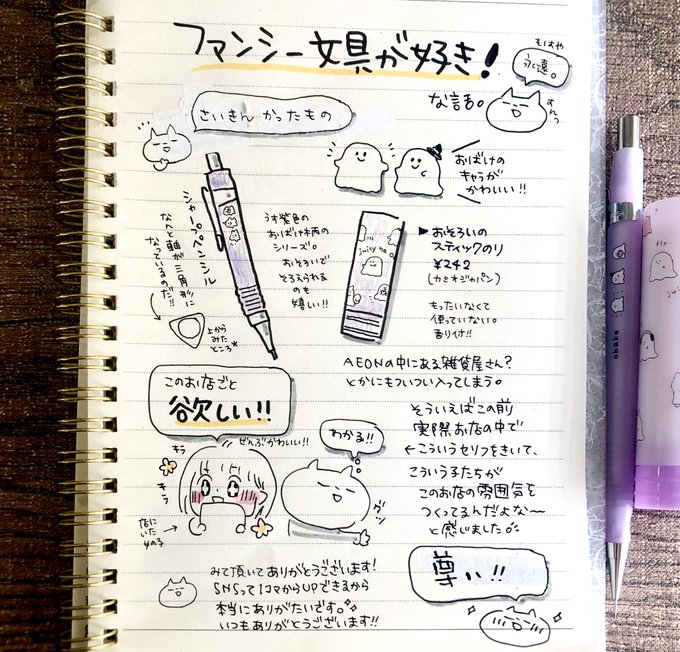 ファンシー文具が好き!
もはや
永遠。
な話。
すんっ
さいきん かったもの
おばけの
キャラが
かわいい!!
シャープペンシル
なんと軸が三角形に
なっているのだ!!
上から
みた
ところ*
うす紫色の
おばけ柄の
シリーズ。
おそろいで
そろえられる
のも
嬉しい!!
juicy na
▶おそろいの
スティックのり
¥242
(カミオジャパン)
もったいなくて
使っていない。
香り付!!
AEONの中にある雑貨屋さん?
とかにもついつい入ってしまう。
このお店ごと
欲しい!!
ぜんぶかわいい!!
キラ
キラ
店に
いた
女の子
わかる!!
グッ
そういえばこの前
実際お店の中で
←こういうセリフをきいて、
こういう子たちが
このお店の雰囲気を
つくってるんだよな〜
と感じました。
みて頂いてありがとうございます!
SNSって1コマからUPできるから
本当にありがたいです。
いつもありがとうございます!!
尊い!!
obake
fly